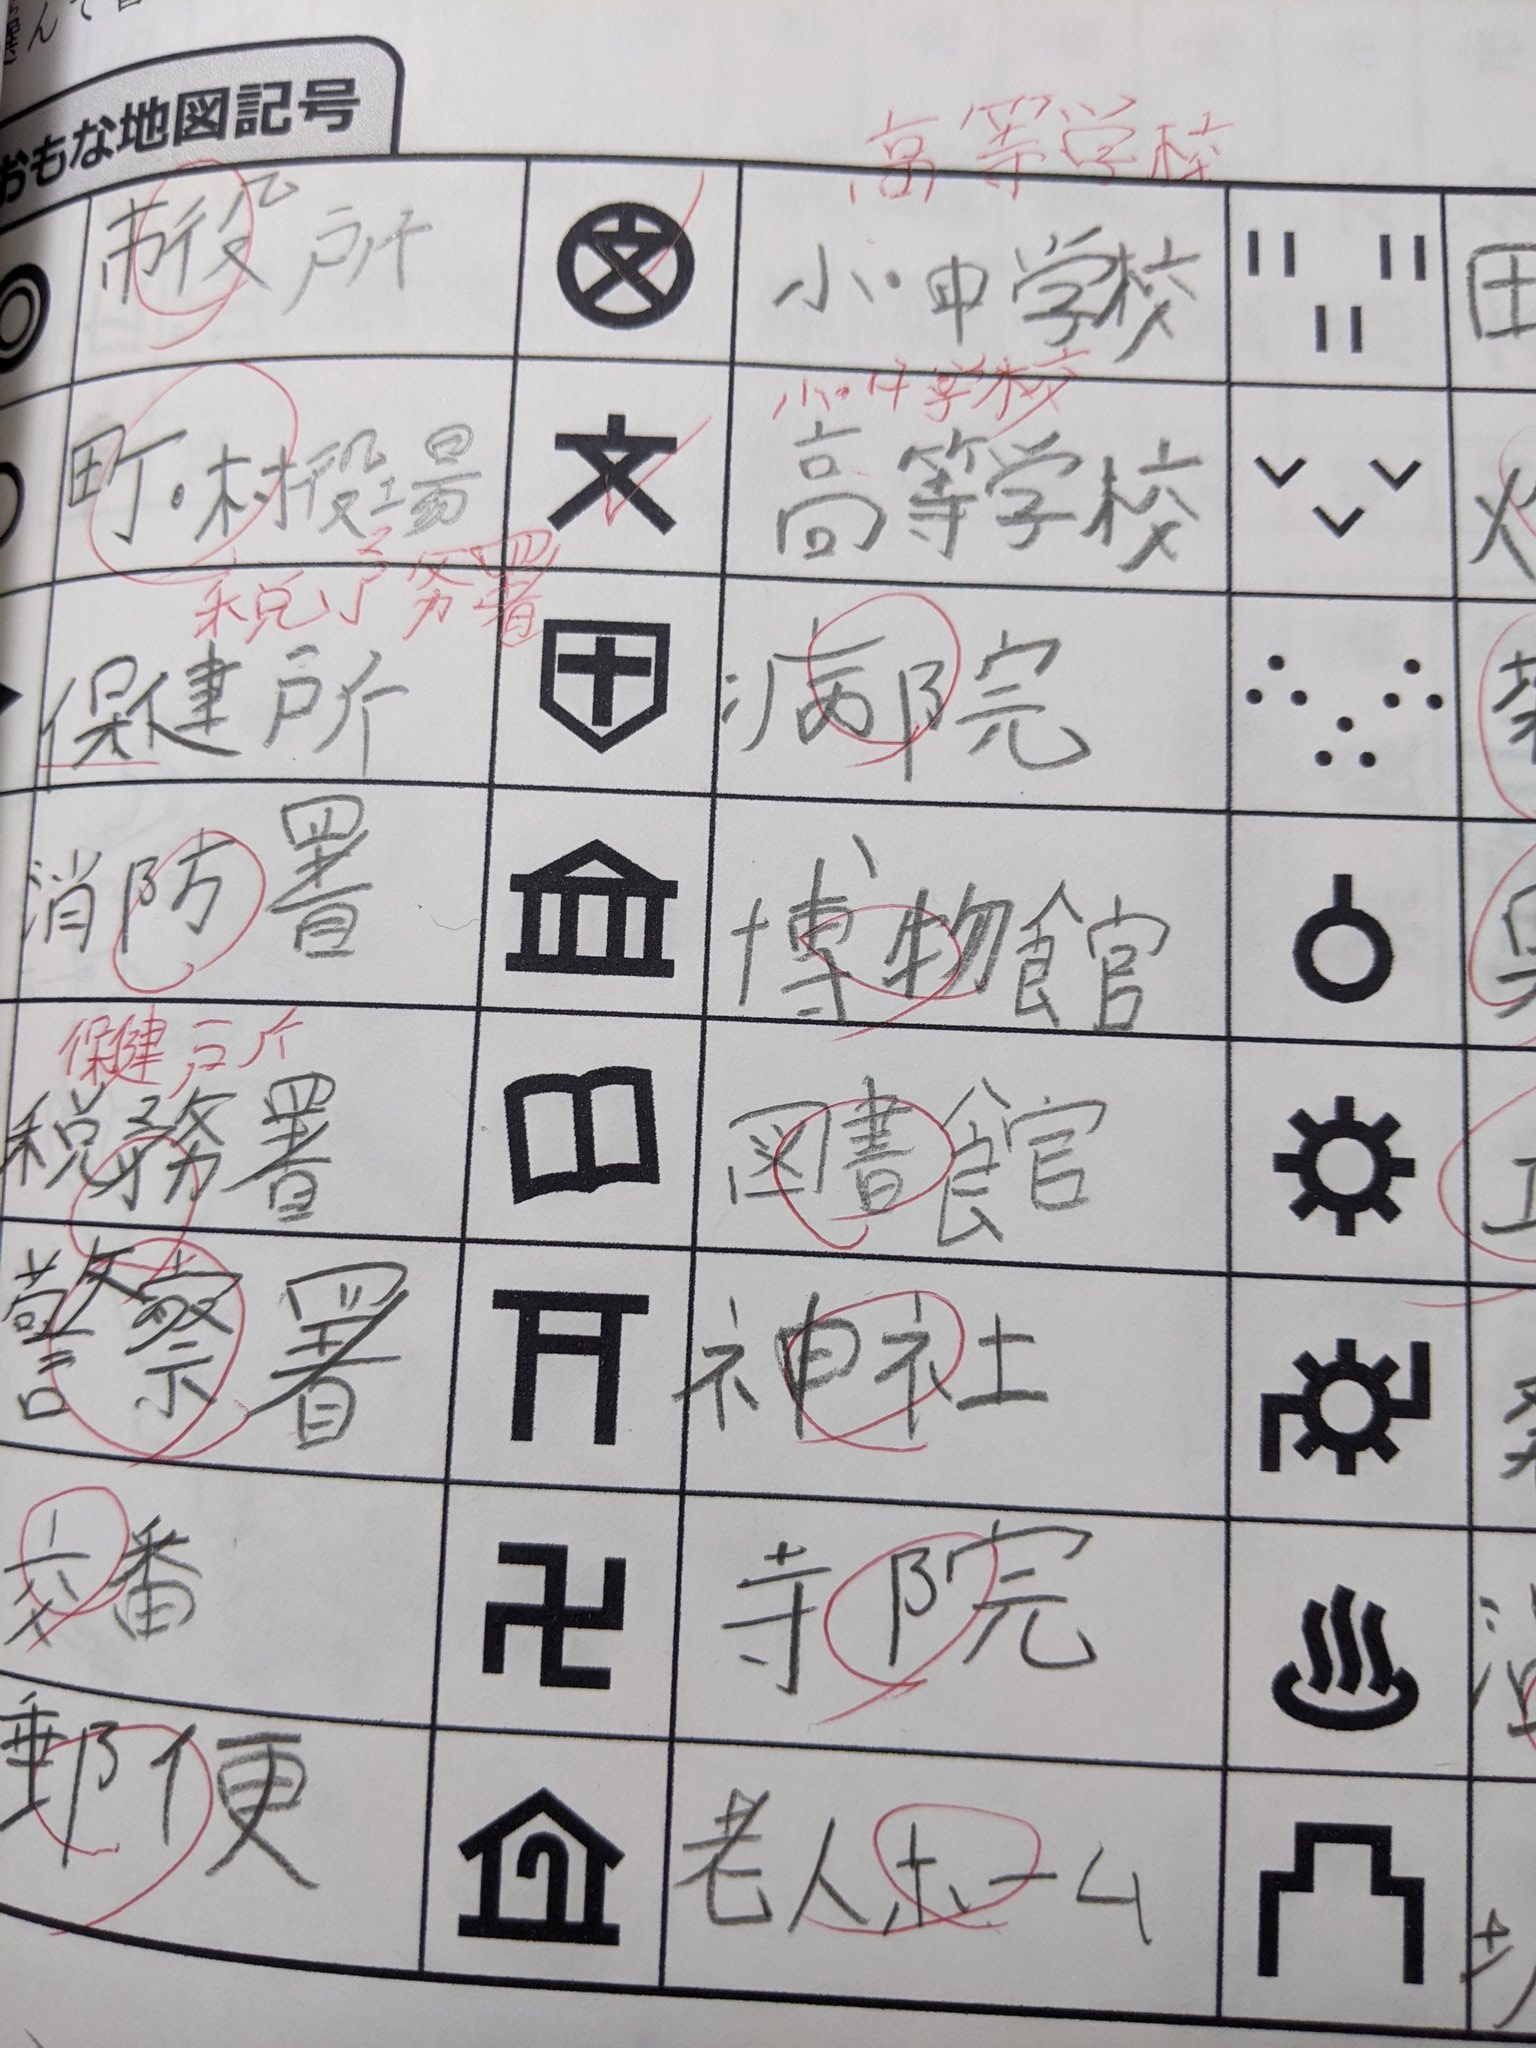 おもな地図記号
高等学校
市役所
小・中学校
田
小・中学校
町・村役場
高等学校
税務署
保健所
病院
消防署
博物館
保健所
税務署
図書館
警察署
神社
交番
寺院
郵便
老人ホーム